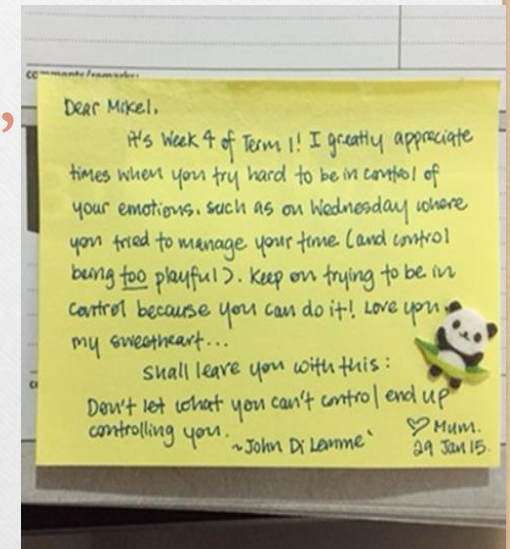 comments/remarks:
Dear Mikel,
It's Week 4 of Term 1! I greatly appreciate
times when you try hard to be in control of
your emotions, such as on Wednesday where
you tried to manage your time (and control
being too playful). Keep on trying to be in
control because you can do it! Love you
my sweetheart...
Shall leave you with this:
Don't let what you can't control end up
controlling you.
~John Di Lemme`
♡ Mum.
29 Jan 15.